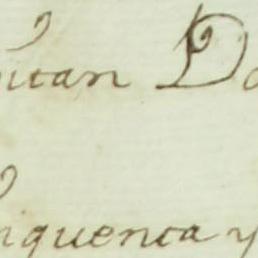 pitan Do
nquenta y